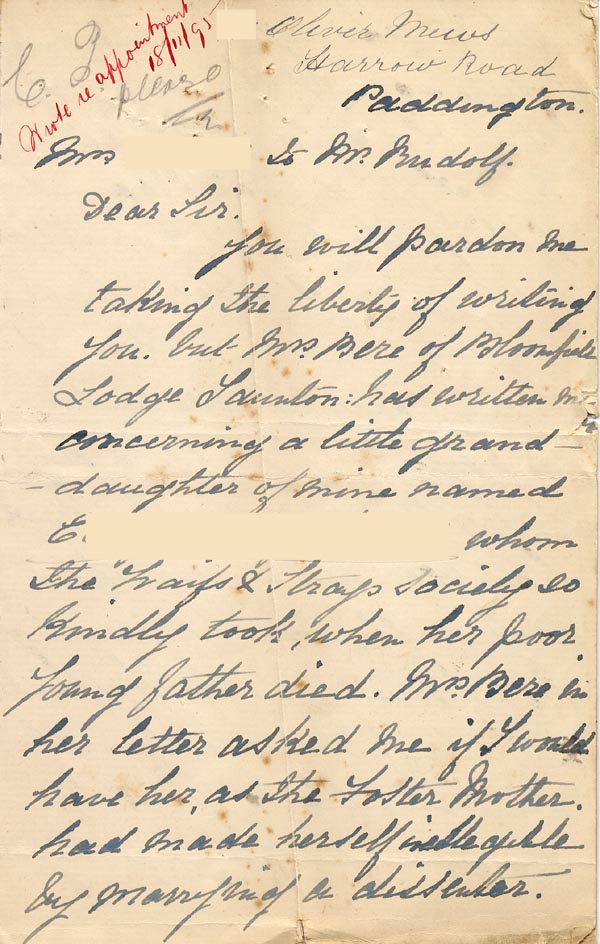 Wrote re appointment
18/11/95
C.
please
Oliver Mews
Harrow Road
Paddington.
Mrs to Mr. Rudolf.
Dear Sir.
You will pardon me
taking the liberty of writing
you. but Mrs. Bere of Bloomfield
Lodge Taunton: has written me
concerning a little grand-
-daughter of mine named
E. whom
the "Waifs & Strays" society so
kindly took, when her poor
young father died. Mrs. Bere in
her letter asked me if I would
have her, as the Foster Mother.
had made herself inellegible
by marrying a dissenter.